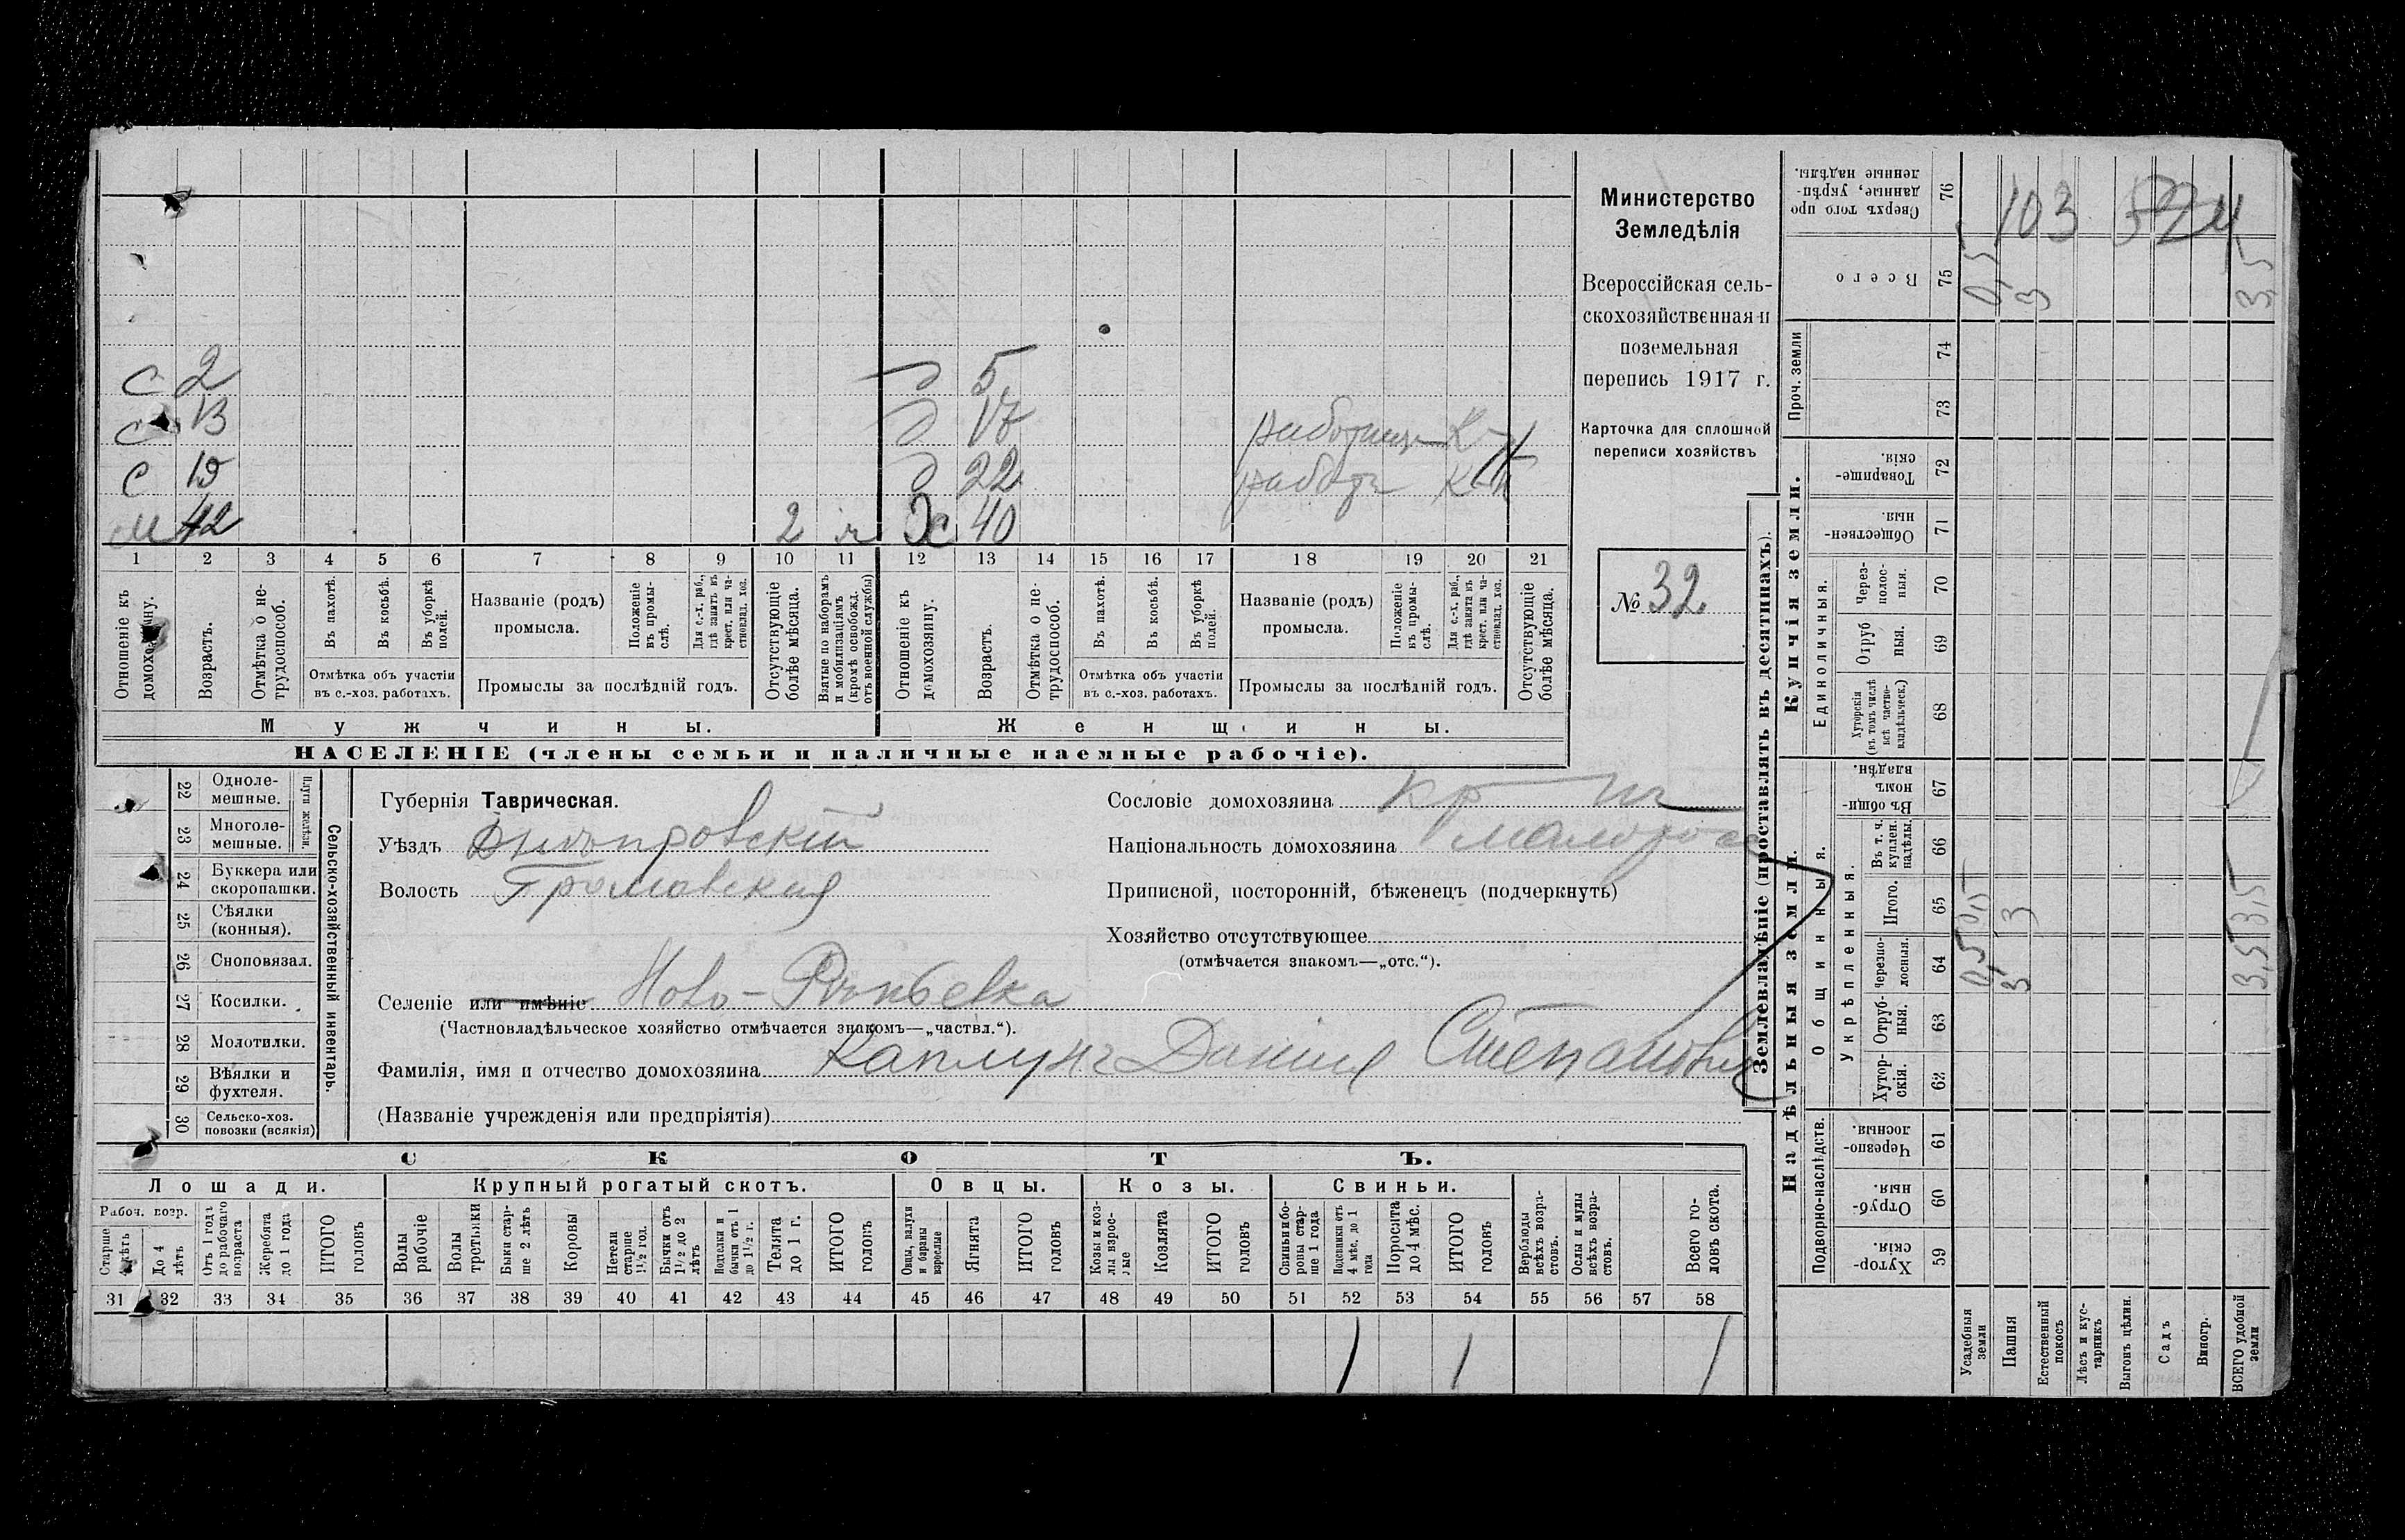 с 2 д 5
с 13 д 17 К
с 19 д 22
м 42 2 ж 40
1 2 3 4 5 6 7 8 9 10 11 12 13 14 15 16 17 18 19 20 21
Отношеніе къ домохозяину.
Возрастъ.
Отмѣтка о нетрудоспособ.
Въ пахотѣ.
Въ косьбѣ.
Въ уборкѣ полей.
Отмѣтка объ участіи въ с.-хоз. работахъ.
Названіе (родъ) промысла.
Положеніе въ промыслѣ.
Для с.-х. раб., гдѣ занятъ въ крест. или частновлад. хоз.
Промыслы за послѣдній годъ.
Отсутствующіе болѣе мѣсяца.
Взятые по наборамъ и мобилизаціямъ (кромѣ освобожд. отъ военной службы)
Отношеніе къ домохозяину.
Возрастъ.
Отмѣтка о нетрудоспособ.
Въ пахотѣ.
Въ косьбѣ.
Въ уборкѣ полей.
Отмѣтка объ участіи въ с.-хоз. работахъ.
Названіе (родъ) промысла.
Положеніе въ промыслѣ.
Для с.-х. раб., гдѣ занята въ крест. или частновлад. хоз.
Промыслы за послѣдній годъ.
Отсутствующіе болѣе мѣсяца.
Мужчины. Женщины.
НАСЕЛЕНІЕ (члены семьи и наличные наемные рабочіе).
Министерство
Земледѣлія
Всероссійская сель-
скохозяйственная и
поземельная
перепись 1917 г.
Карточка для сплошной
переписи хозяйствъ
№ 32
22 Одноле-
мешные.
23 Многоле-
мешные.
Плуги желѣзн.
24 Буккера или
скоропашки.
25 Сѣялки
(конныя).
26 Сноповязал.
27 Косилки.
28 Молотилки.
29 Вѣялки и
фухтеля.
30 Сельско-хоз.
повозки (всякія)
Сельско-хозяйственный инвентарь.
Губернія Таврическая.
Уѣздъ Днѣпровскій
Волость Громовская
Селеніе или имѣніе Ново-
(Частновладѣльческое хозяйство отмѣчается знакомъ—„частвл.“).
Фамилія, имя и отчество домохозяина Каплунъ Даніил Степанович
(Названіе учрежденія или предпріятія)
Сословіе домохозяина кр-нъ
Національность домохозяина малоросс
Приписной, посторонній, бѣженецъ (подчеркнуть)
Хозяйство отсутствующее
(отмѣчается знакомъ—„отс.“).
СКОТЪ.
Лошади. Крупный рогатый скотъ. Овцы. Козы. Свиньи.
Рабоч. возр.
Старше 4 лѣтъ
До 4 лѣтъ
Отъ 1 года до рабочаго возраста
Жеребята до 1 года
ИТОГО головъ
Волы рабочіе
Волы третьяки
Быки старше 2 лѣтъ
Коровы
Нетели старше 1½ год.
Бычки отъ 1½ до 2 лѣтъ
Подтелки и бычки отъ 1 до 1½ г.
Телята до 1 г.
ИТОГО головъ
Овцы, валухи и бараны взрослые
Ягнята
ИТОГО головъ
Козы и козлы взрослые
Козлята
ИТОГО головъ
Свиньи и боровы старше 1 года
Подсвинки отъ 4 мѣс. до 1 года
Поросята до 4 мѣс.
ИТОГО головъ
Верблюды всѣхъ возрастовъ.
Ослы и мулы всѣхъ возрастовъ.
Всего головъ скота.
31 32 33 34 35 36 37 38 39 40 41 42 43 44 45 46 47 48 49 50 51 52 53 54 55 56 57 58
1 1 1
Землевладѣніе (проставлять въ десятинахъ).
Сверхъ того проданные, укрѣпленные надѣлы. 76 103 524
Всего 75 0,5 3 3,5
Проч. земли 74
73
Купчія земли.
Товарищескія. 72
Общественныя. 71
Единоличныя.
Черезполосныя. 70
Отрубныя. 69
Хуторскія (въ томъ числѣ всѣ частновладѣльческ.) 68
Надѣльныя земли.
Общинныя.
Въ общинномъ владѣн. 67
Укрѣпленныя.
Въ т. ч. куплен. надѣлы. 66
Итого. 65 0,5 3 3,5
черезполосныя. 64 0,5 3 3,5
Отрубныя. 63
Хуторскія. 62
Подворно-наслѣдств.
Черезполосныя. 61
Отрубныя. 60
Хуторскія. 59
Усадебныя земли
Пашня
Естественный покосъ
Лѣсъ и кустарникъ
Выгонъ цѣлин.
Садъ
Виногр.
ВСЕГО удобной земли